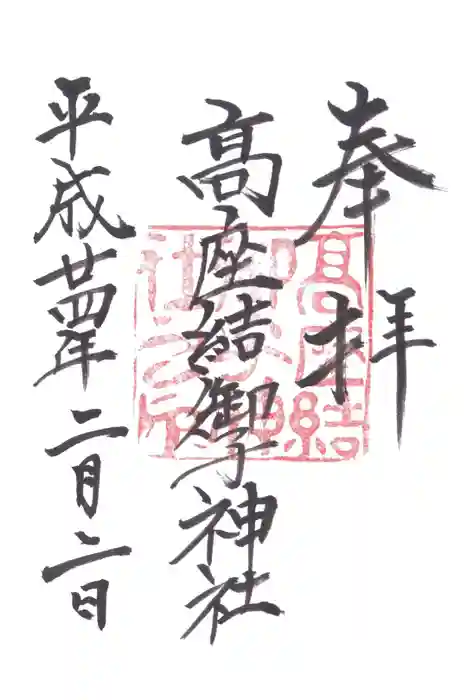 奉拝
高座結御子神社
平成廿四年二月二日
高座結
御子神
社之印